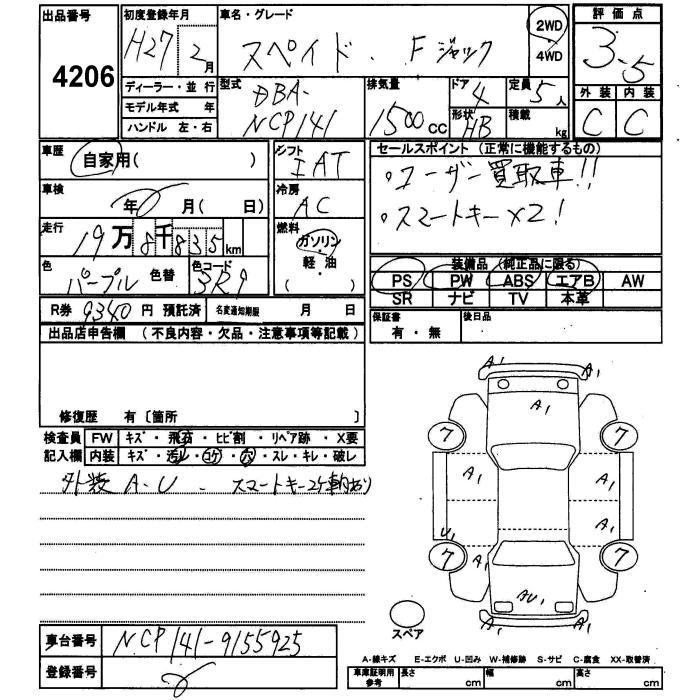 出品番号 4206
初度登録年月 H27年 2月
車名・グレード スペイド・Fジャック
2WD・4WD
評価点 3.5
外装 内装
C C
ディーラー・並行
モデル年式 年
ハンドル 左・右
型式 DBA-NCP141
排気量 1500cc
ドア 4
形状 HB
定員 5人
積載 kg
車歴 自家用( )
車検 年 月( 日)
走行 19万8千835km
色 パープル 色替 色コード 3R9
シフト IAT
冷房 AC
燃料 ガソリン・軽油
( )
セールスポイント (正常に機能するもの)
・ユーザー買取車!!
・スマートキー×2!
装備品 (純正品に限る)
PS PW ABS エアB AW
SR ナビ TV 本革
R券 9340円 預託済 名変通知期限 月 日
保証書 有・無
後日品
出品店申告欄 (不良内容・欠品・注意事項等記載)
修復歴 有〔箇所 〕
検査員 FW キズ・飛石・ヒビ割・リペア跡・X要
記入欄 内装 キズ・汚レ・コゲ・穴・スレ・キレ・破レ
外装 A-U. スマートキー2ケ車内あり
A1 A1
A1
7 7
A1 A1
A1
U1
7 7
A1
AU1
A1 A1
スペア
車台番号 NCP141-9155925
登録番号
A-線キズ E-エクボ U-凹み W-補修跡 S-サビ C-腐食 XX-取替済
車庫証明用参考 長さ cm 幅 cm 高さ cm